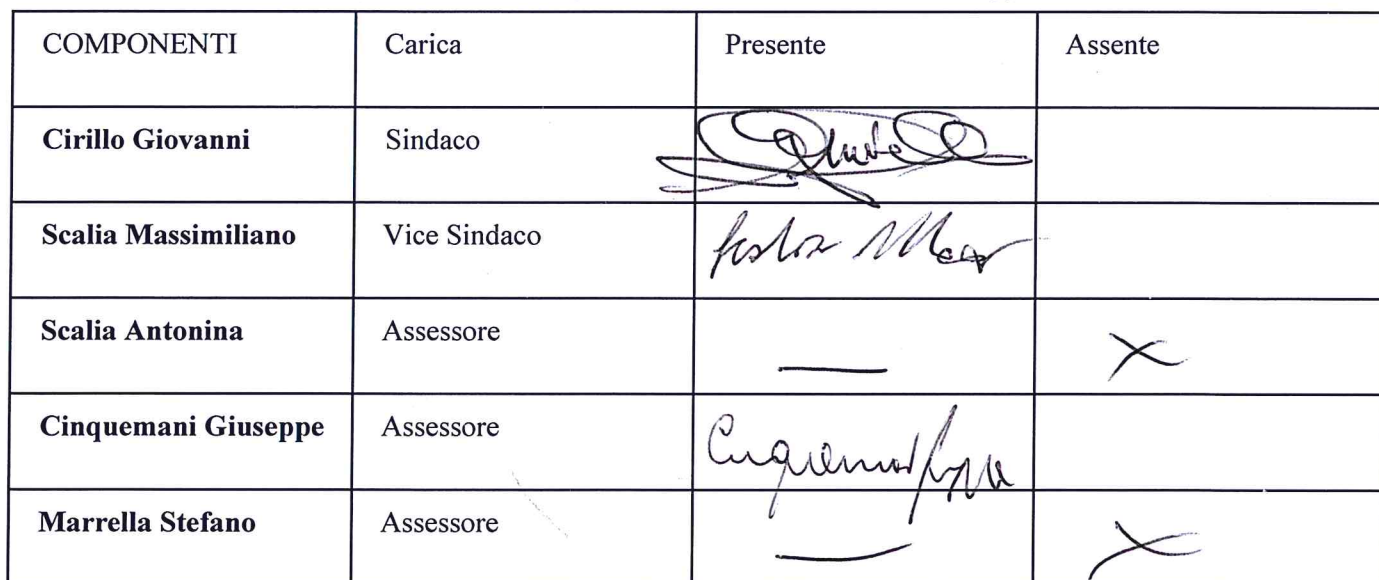 COMPONENTI Carica Presente Assente
Cirillo Giovanni Sindaco
Scalia Massimiliano Vice Sindaco
Scalia Antonina Assessore — X
Cinquemani Giuseppe Assessore
Marrella Stefano Assessore — X